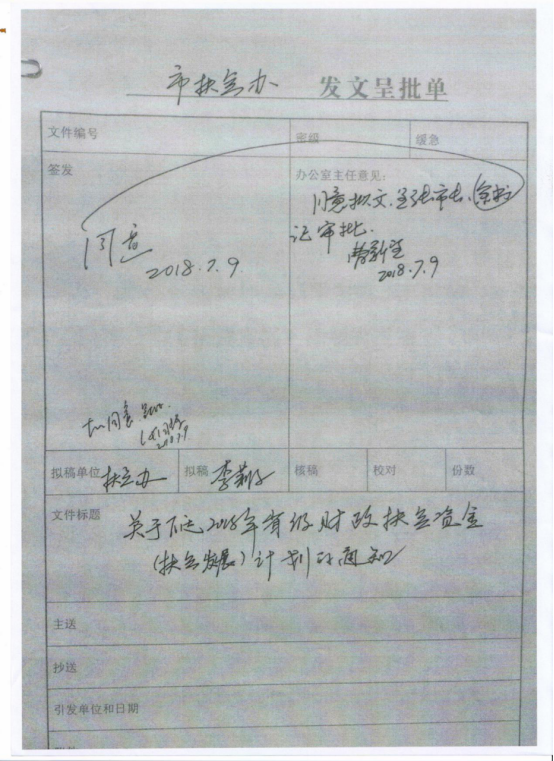 市扶贫办 发文呈批单
文件编号
密级
缓急
签发
办公室主任意见：
同意拟文.呈张市长、余书
记审批.
2018.7.9
同意
2018.7.9
2018.7.9
拟稿单位 扶贫办
拟稿 李莉
核稿
校对
份数
文件标题
关于下达2018年省级财政扶贫资金
(扶贫发展)计划的通知
主送
抄送
引发单位和日期